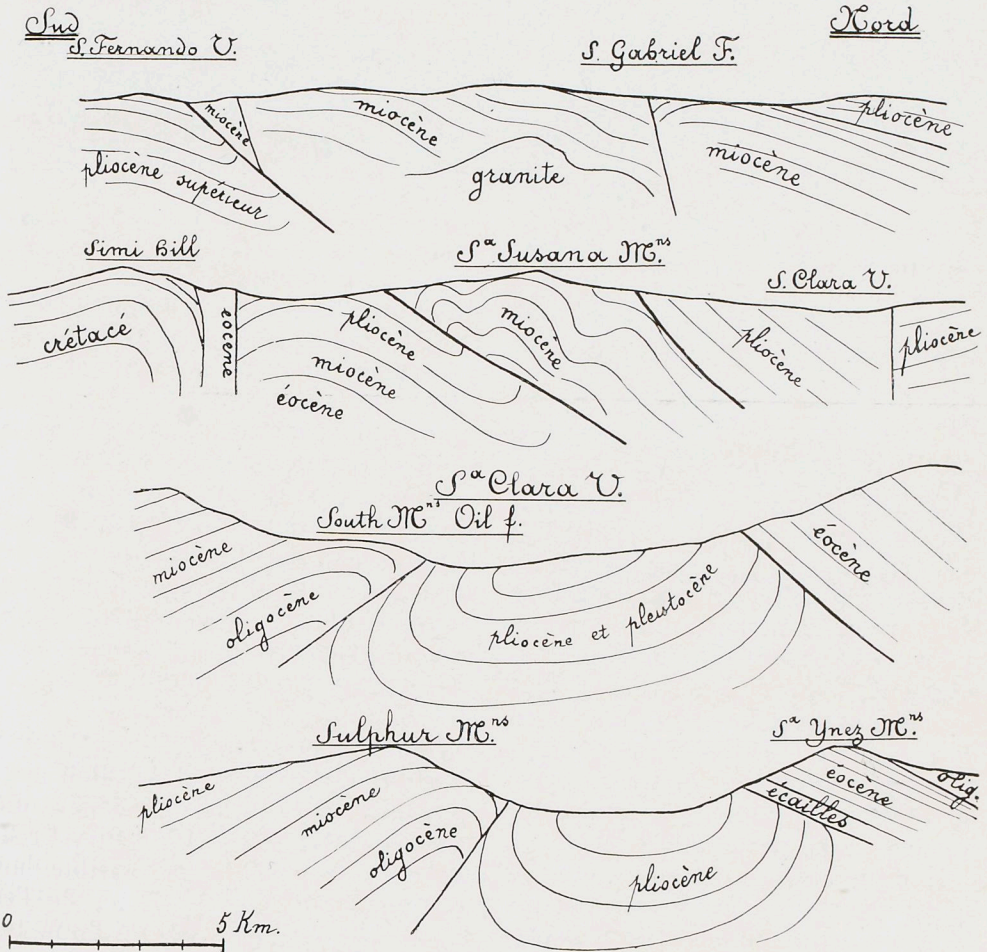 Sud
Nord
S. Fernando V.
S. Gabriel F.
miocène
miocène
pliocène
pliocène supérieur
granite
miocène
Simi Hill
Sᵃ Susana Mⁿˢ
S. Clara V.
crétacé
éocène
pliocène
miocène
éocène
miocène
pliocène
pliocène
Sᵃ Clara V.
South Mⁿˢ Oil f.
miocène
oligocène
pliocène et pleistocène
éocène
Sulphur Mⁿˢ
Sᵃ Ynez Mⁿˢ
pliocène
miocène
oligocène
pliocène
éocène
écailles
olig.
0
5 Km.